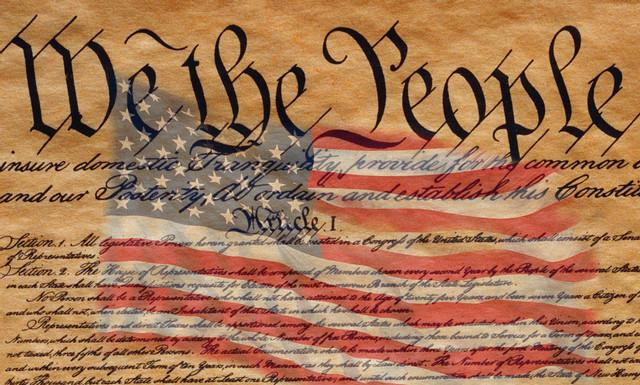 We the People
insure domestic Tranquility, provide for the common
and our Posterity, do ordain and establish this Constit
Article I
Section 1. All legislative Powers herein granted shall be vested in a Congress of the United States, which shall consist of a Senat
of Representatives.
Section 2. The House of Representatives shall be composed of Members chosen every second Year by the People of the several States
in each State shall have the Qualifications requisite for Electors of the most numerous Branch of the State Legislature.
No Person shall be a Representative who shall not have attained to the Age of twenty five Years, and been seven Years a Citizen of
and who shall not, when elected, be an Inhabitant of that State in which he shall be chosen.
Representatives and direct Taxes shall be apportioned among the several States which may be included within this Union, according to
Numbers, which shall be determined by adding to the whole Number of free Persons, including those bound to Service for a Term of Years, and
not taxed, three fifths of all other Persons. The actual Enumeration shall be made within three Years after the first Meeting of the Congress
and within every subsequent Term of ten Years, in such Manner as they shall by Law direct. The Number of Representatives shall not
thirty Thousand, but each State shall have at Least one Representative; and until such enumeration shall be made, the State of New Ham